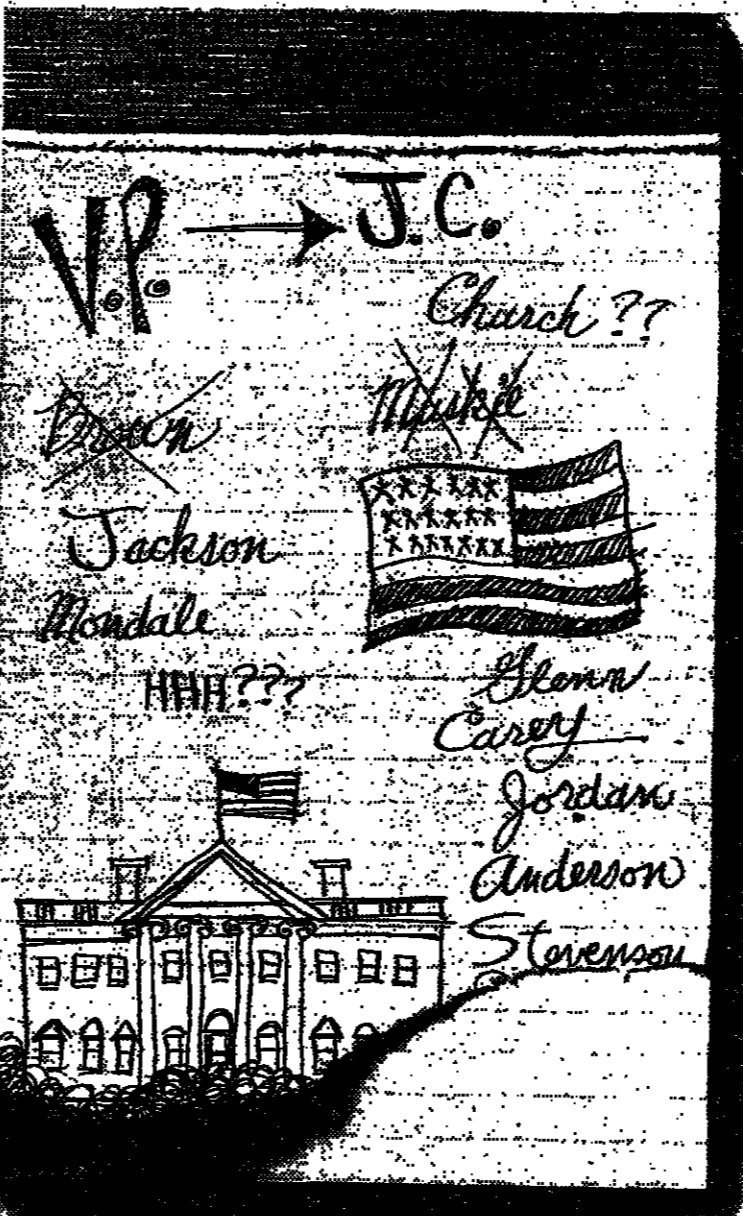 V.P. → J.C.
Church ??
Brown
Muskie
Jackson
Mondale
HHH???
Glenn
Carey
Jordan
Anderson
Stevenson